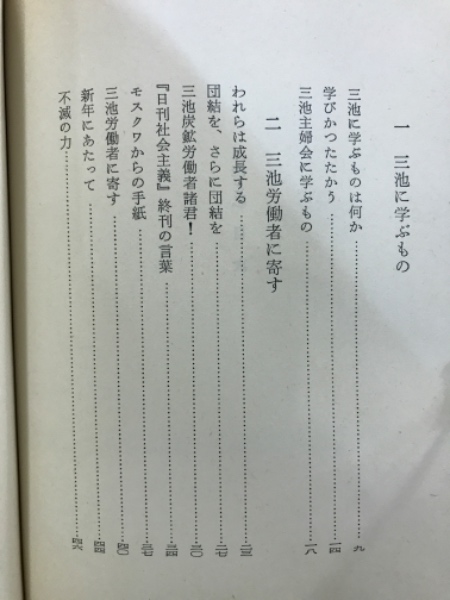 一 三池に学ぶもの
三池に学ぶものは何か……九
学びかつたたかう……一四
三池主婦会に学ぶもの……一八
二 三池労働者に寄す
われらは成長する……二三
団結を、さらに団結を……二七
三池炭鉱労働者諸君！……三〇
『日刊社会主義』終刊の言葉……三四
モスクワからの手紙……三七
三池労働者に寄す……四〇
新年にあたって……四四
不滅の力……四六